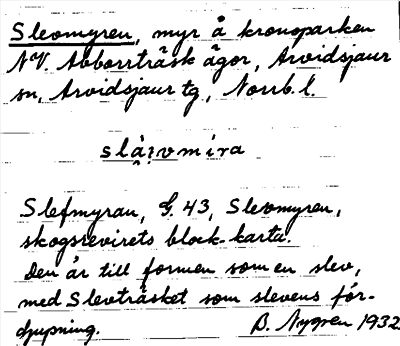 Slevmyren, myr å kronoparken
NV. Abborrträsk ägor, Arvidsjaur
sn, Arvidsjaur tg., Norrb. l.
slàivmíra
Slefmyran, G. 43, Slevmyren,
skogsrevirets block-karta.
Den är till formen som en slev,
med Slevträsket som slevens för-
djupning. B. Nygren 1932.